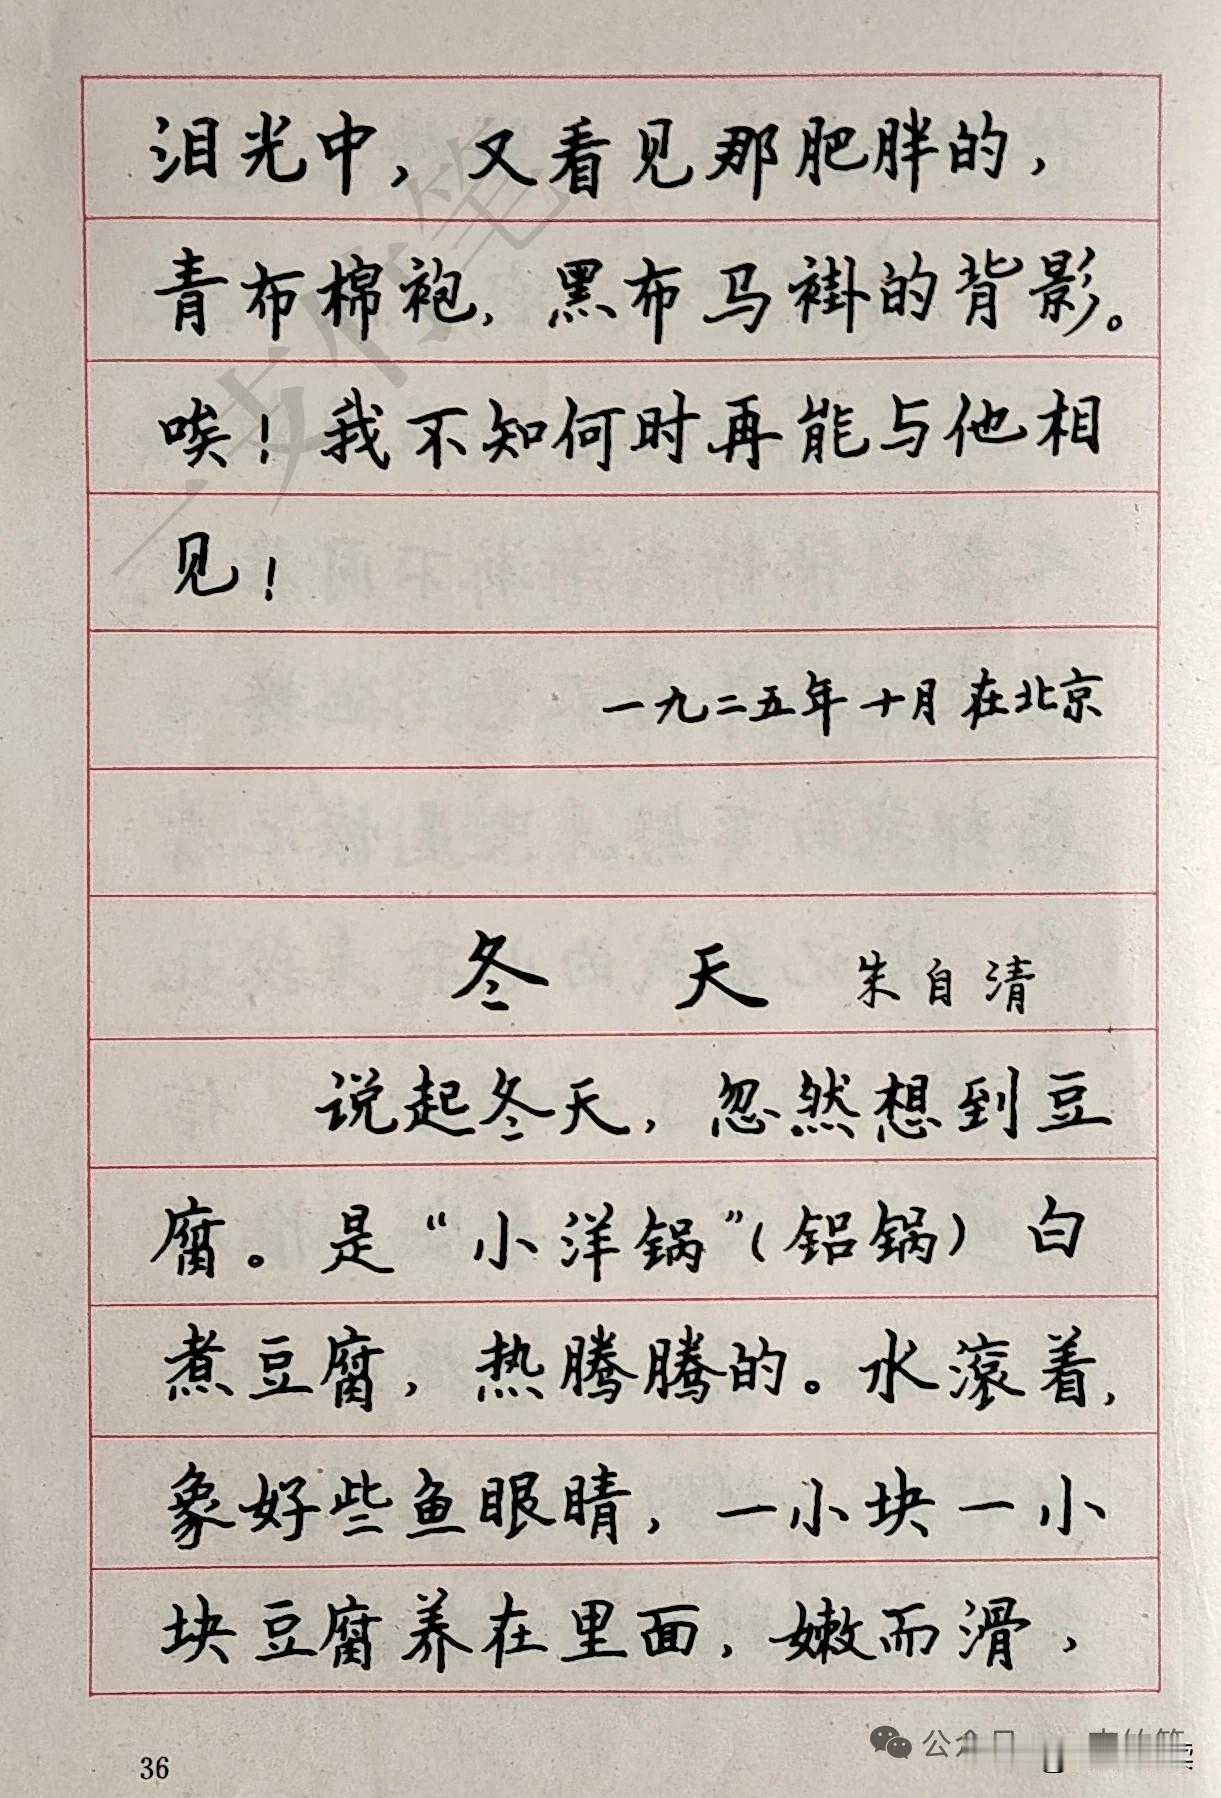 泪光中，又看见那肥胖的，
青布棉袍，黑布马褂的背影。
唉！我不知何时再能与他相
见！
一九二五年十月在北京
冬 天 朱自清
说起冬天，忽然想到豆
腐。是“小洋锅”（铝锅）白
煮豆腐，热腾腾的。水滚着，
象好些鱼眼睛，一小块一小
块豆腐养在里面，嫩而滑，
36